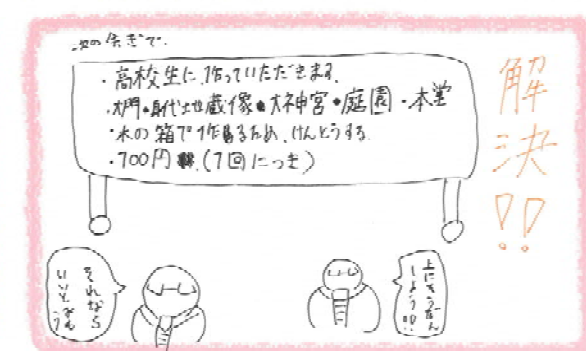 次の会議で、
・高校生に作っていただきます。
・大門・身代地蔵像・大神宮・庭園・本堂
・木の箱で作るため、けんとうする。
・100円 (1回につき)
解決!!
それならいいと思う
上にそうだんしよう!!